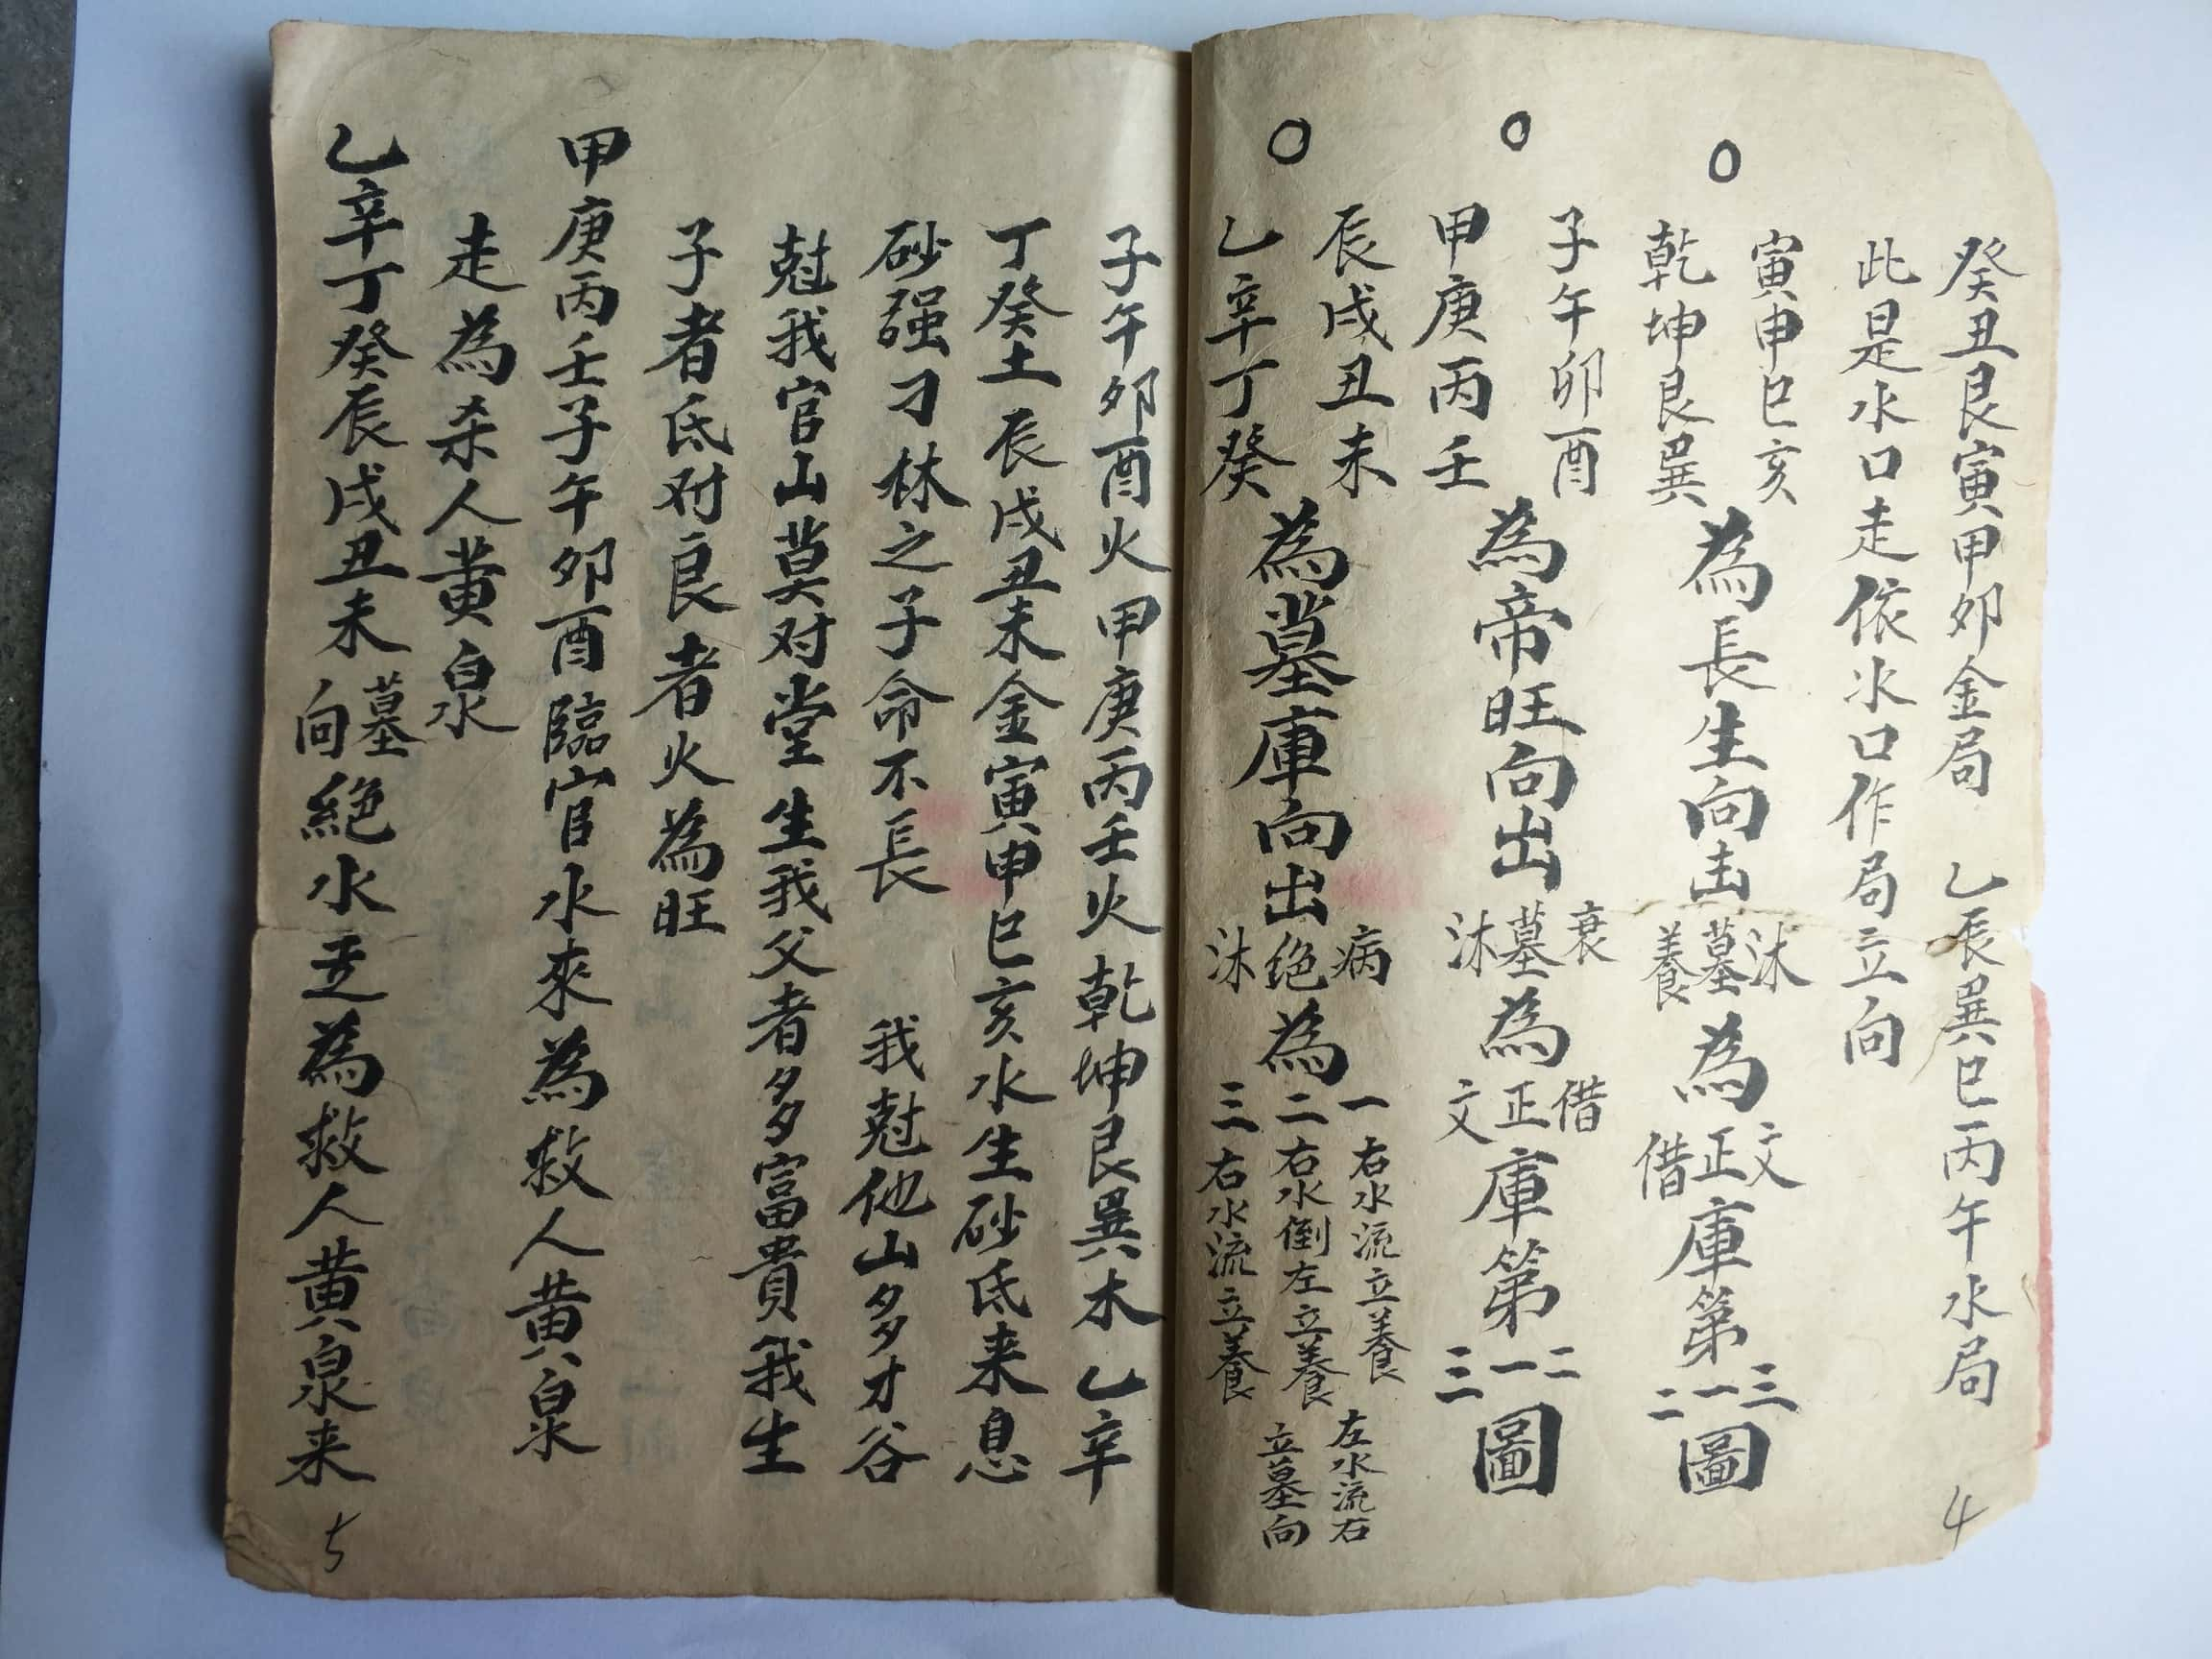 癸丑艮寅甲卯金局　乙辰巽巳丙午水局
此是水口走依水口作局立向
○
寅申巳亥
乾坤艮巽
為長生向出
沐
墓
養
為
文
正
借
庫第
三
一
二
圖
○
子午卯酉
甲庚丙壬
為帝旺向出
衰
墓
沐
為
借
正
文
庫第
二
一
三
圖
○
辰戌丑未
乙辛丁癸
為墓庫向出
病
绝
沐
為
一右水流立養　左水流右
二右水倒左立養　立墓向
三右水流立養
4
子午卯酉火甲庚丙壬火乾坤艮巽木乙辛
丁癸土辰戌丑未金寅申巳亥水生砂氐来息
砂强刁林之子命不長　我尅他山多才谷
尅我官山莫对堂生我父者多富貴我生
子者氐对良者火為旺
甲庚丙壬子午卯酉臨官水來為救人黄泉
走為杀人黄泉
乙辛丁癸辰戌丑未
墓
向
絕水走為救人黄泉来
5